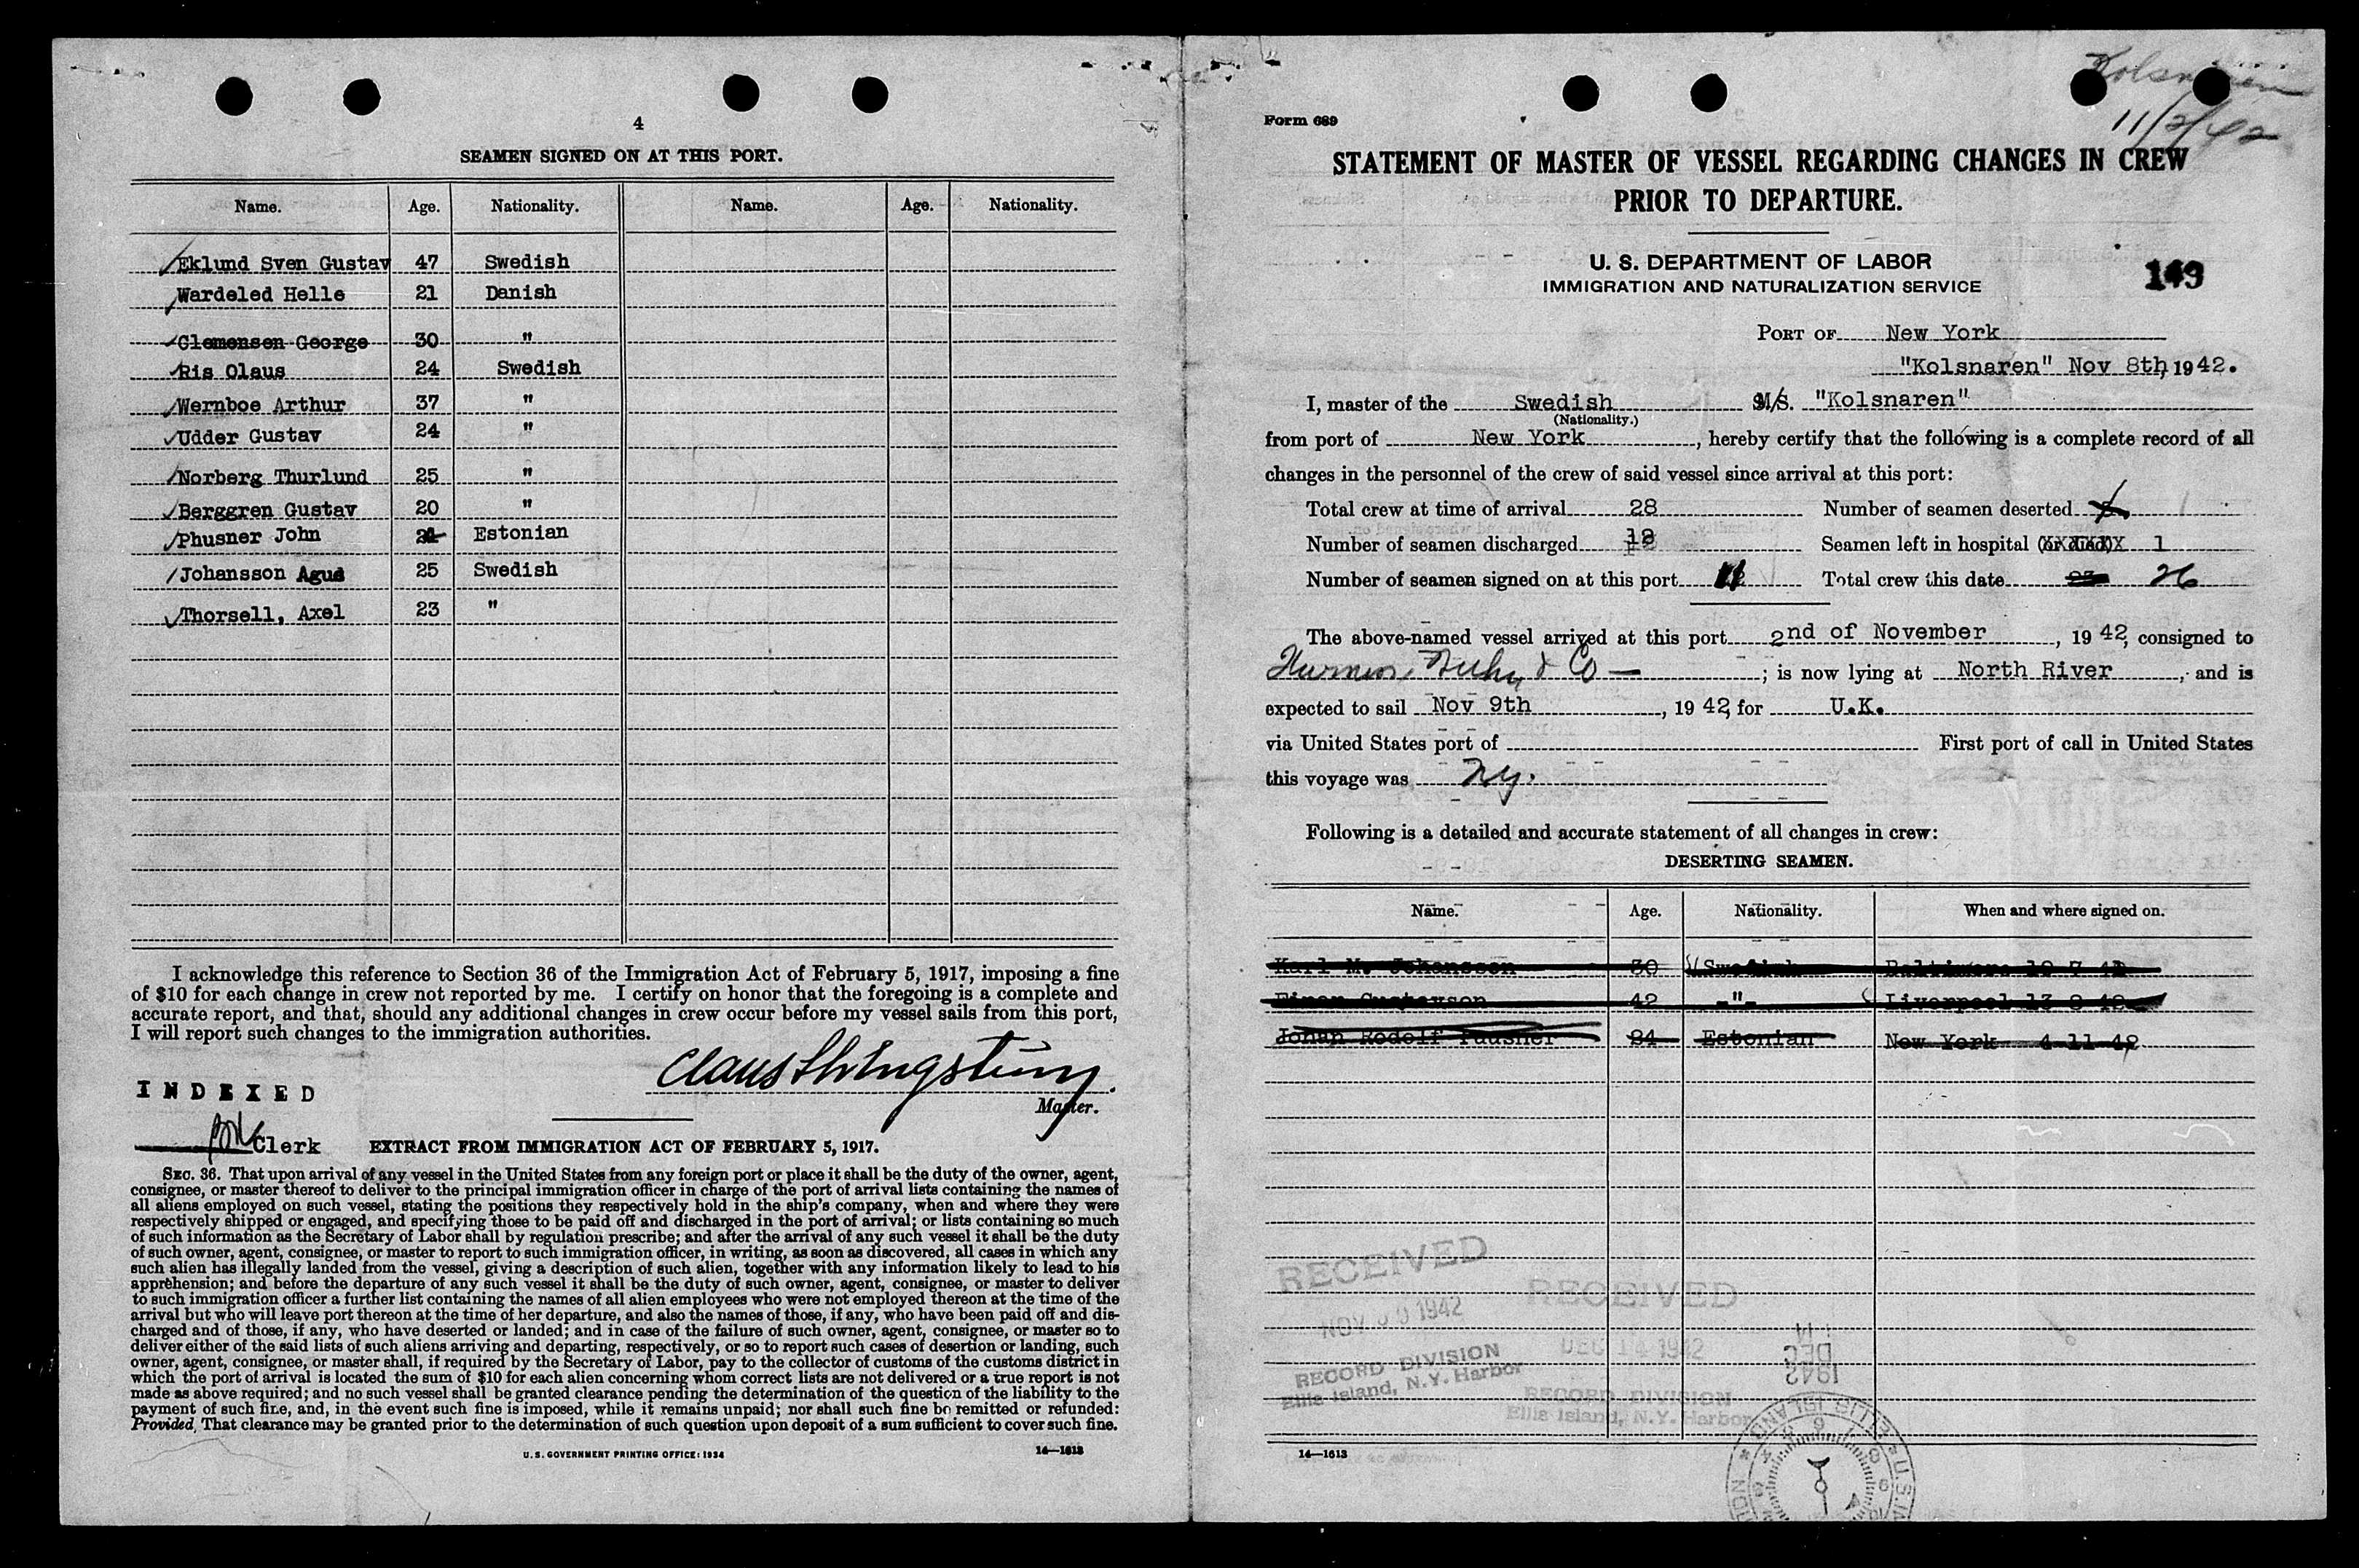 4
SEAMEN SIGNED ON AT THIS PORT.
Name. Age. Nationality. Name. Age. Nationality.
Eklund Sven Gustav 47 Swedish
Wardeled Helle 21 Danish
Clemensen George 30 "
Ris Olaus 24 Swedish
Wernboe Arthur 37 "
Udder Gustav 24 "
Norberg Thurlund 25 "
Berggren Gustav 20 "
Phusner John 24 Estonian
Johansson Agus 25 Swedish
Thorsell, Axel 23 "
I acknowledge this reference to Section 36 of the Immigration Act of February 5, 1917, imposing a fine
of $10 for each change in crew not reported by me. I certify on honor that the foregoing is a complete and
accurate report, and that, should any additional changes in crew occur before my vessel sails from this port,
I will report such changes to the immigration authorities.
Master.
INDEXED
Clerk
EXTRACT FROM IMMIGRATION ACT OF FEBRUARY 5, 1917.
SEC. 36. That upon arrival of any vessel in the United States from any foreign port or place it shall be the duty of the owner, agent,
consignee, or master thereof to deliver to the principal immigration officer in charge of the port of arrival lists containing the names of
all aliens employed on such vessel, stating the positions they respectively hold in the ship's company, when and where they were
respectively shipped or engaged, and specifying those to be paid off and discharged in the port of arrival; or lists containing so much
of such information as the Secretary of Labor shall by regulation prescribe; and after the arrival of any such vessel it shall be the duty
of such owner, agent, consignee, or master to report to such immigration officer, in writing, as soon as discovered, all cases in which any
such alien has illegally landed from the vessel, giving a description of such alien, together with any information likely to lead to his
apprehension; and before the departure of any such vessel it shall be the duty of such owner, agent, consignee, or master to deliver
to such immigration officer a further list containing the names of all alien employees who were not employed thereon at the time of the
arrival but who will leave port thereon at the time of her departure, and also the names of those, if any, who have been paid off and dis-
charged and of those, if any, who have deserted or landed; and in case of the failure of such owner, agent, consignee, or master so to
deliver either of the said lists of such aliens arriving and departing, respectively, or so to report such cases of desertion or landing, such
owner, agent, consignee, or master shall, if required by the Secretary of Labor, pay to the collector of customs of the customs district in
which the port of arrival is located the sum of $10 for each alien concerning whom correct lists are not delivered or a true report is not
made as above required; and no such vessel shall be granted clearance pending the determination of the question of the liability to the
payment of such fine, and, in the event such fine is imposed, while it remains unpaid; nor shall such fine be remitted or refunded:
Provided, That clearance may be granted prior to the determination of such question upon deposit of a sum sufficient to cover such fine.
U. S. GOVERNMENT PRINTING OFFICE: 1934
14—1613
Kolsnaren
11/2/42
Form 689
STATEMENT OF MASTER OF VESSEL REGARDING CHANGES IN CREW
PRIOR TO DEPARTURE.
U. S. DEPARTMENT OF LABOR
IMMIGRATION AND NATURALIZATION SERVICE
149
PORT OF New York
"Kolsnaren" Nov 8th, 1942.
I, master of the Swedish M/S. "Kolsnaren"
(Nationality.)
from port of New York, hereby certify that the following is a complete record of all
changes in the personnel of the crew of said vessel since arrival at this port:
Total crew at time of arrival 28 Number of seamen deserted
Number of seamen discharged 12 Seamen left in hospital (or died) 1
Number of seamen signed on at this port 11 Total crew this date 23 26
The above-named vessel arrived at this port 2nd of November, 1942, consigned to
& Co — ; is now lying at North River, and is
expected to sail Nov 9th, 1942, for U.K.
via United States port of First port of call in United States
this voyage was Ny.
Following is a detailed and accurate statement of all changes in crew:
DESERTING SEAMEN.
Name. Age. Nationality. When and where signed on.
Karl M. Johansson 30 Swedish Baltimore
Einar Gustavson 42 -"- Liverpool
Johan Rodolf Pausner 24 Estonian New York 4-11-42
RECEIVED
NOV 1942
RECORD DIVISION
Ellis Island, N.Y. Harbor
RECEIVED
DEC 14 1942
RECORD DIVISION
Ellis Island, N.Y. Harbor
DEC
1942
ELLIS ISLAND
14—1613